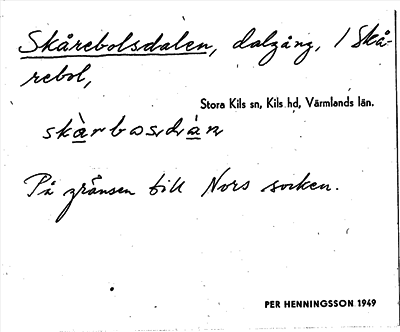 Skårebolsdalen, dalgång, i Skå-
rebol,
Stora Kils sn, Kils hd, Värmlands län.
På gränsen till Nors socken.
PER HENNINGSSON 1949